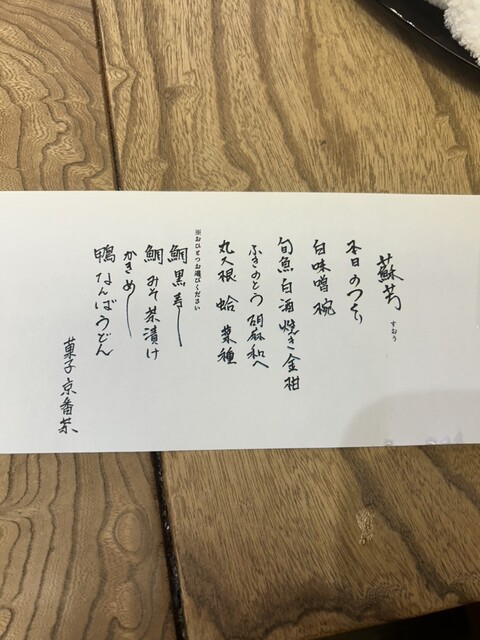 蘇芳
すおう
本日のつくり
白味噌椀
旬魚白酒焼き 金柑
ふきのとう 胡麻和へ
丸大根 蛤 菜種
※おひとつお選びください
鯛黒寿し
鯛みそ茶漬け
かきめし
鴨なんばうどん
菓子 京番茶